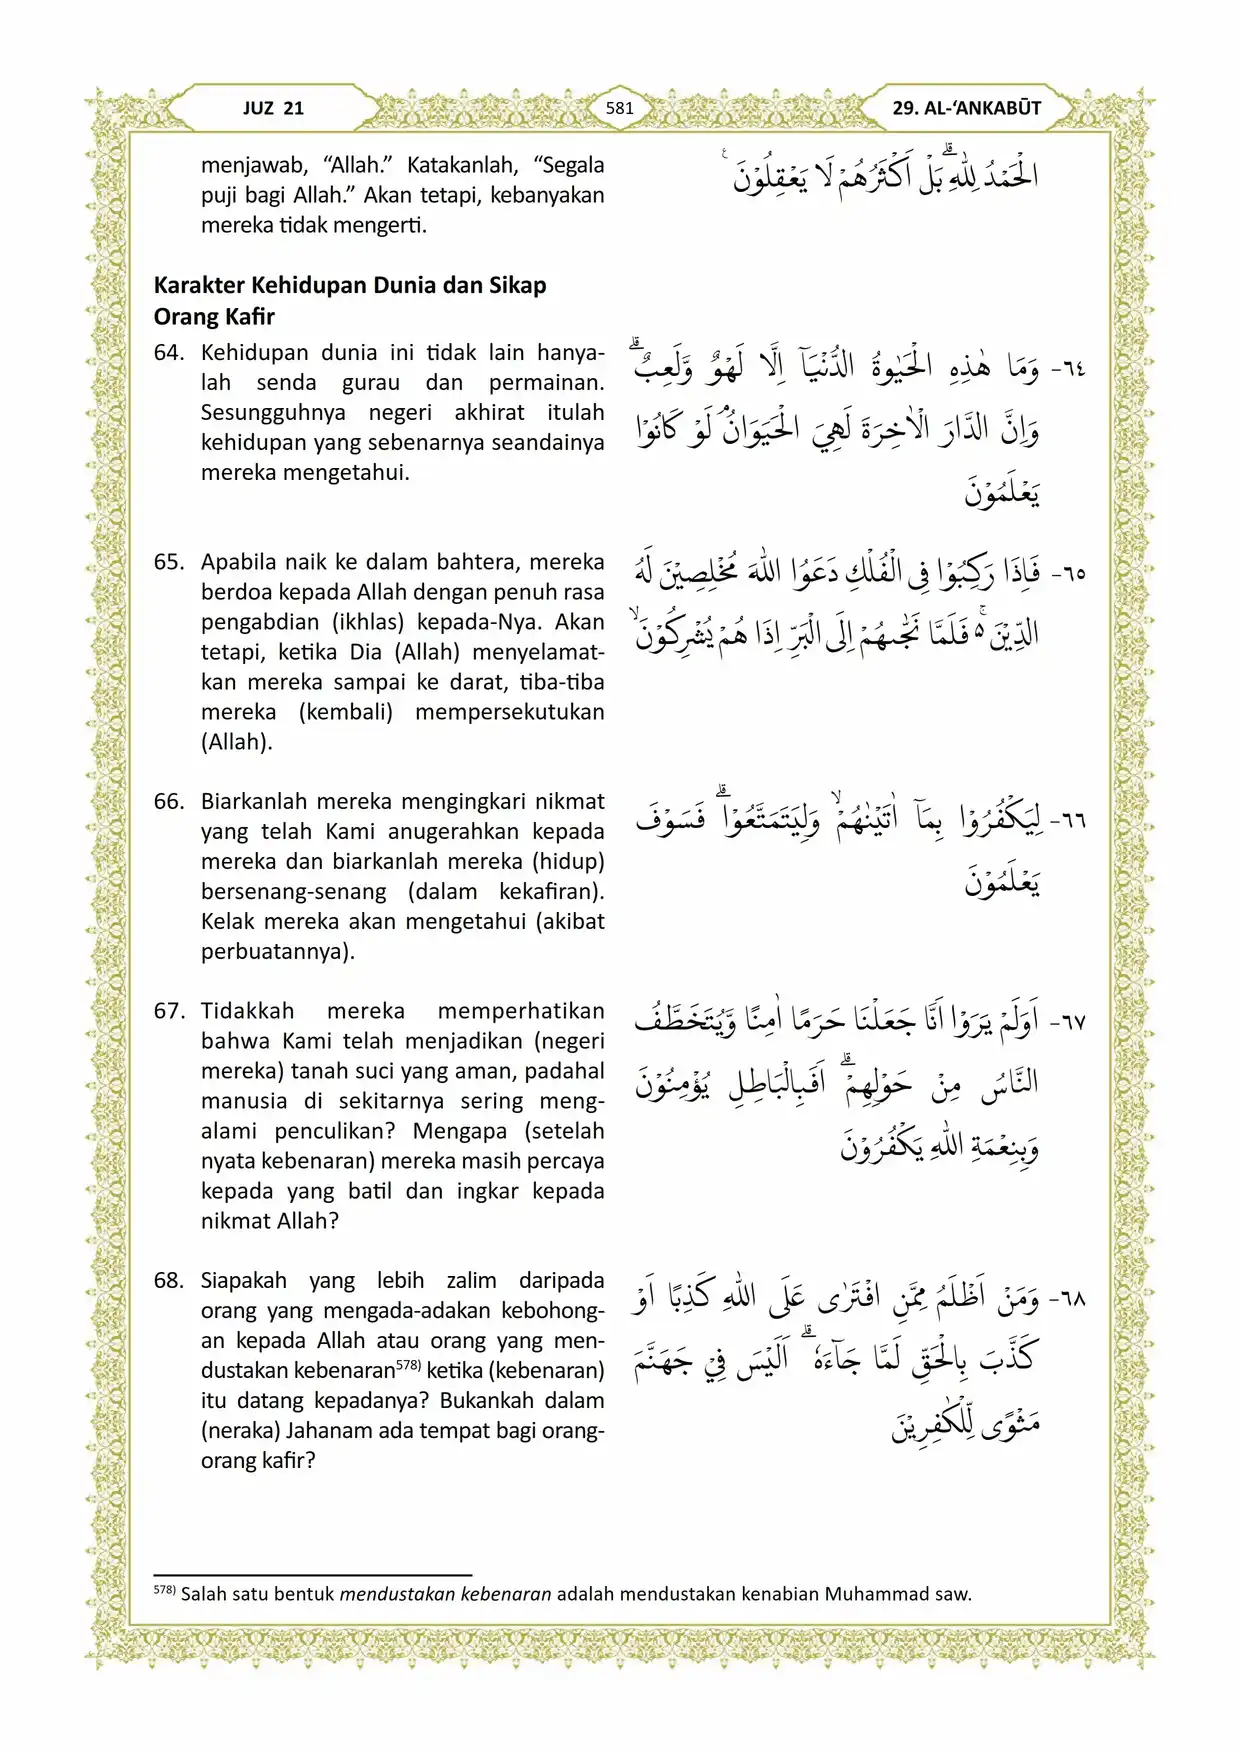 JUZ 21
581
29. AL-‘ANKABŪT
menjawab, “Allah.” Katakanlah, “Segala
puji bagi Allah.” Akan tetapi, kebanyakan
mereka tidak mengerti.
الْحَمْدُ لِلّٰهِ ۗبَلْ اَكْثَرُهُمْ لَا يَعْقِلُوْنَ ࣖ
Karakter Kehidupan Dunia dan Sikap
Orang Kafir
64. Kehidupan dunia ini tidak lain hanya-
lah senda gurau dan permainan.
Sesungguhnya negeri akhirat itulah
kehidupan yang sebenarnya seandainya
mereka mengetahui.
٦٤- وَمَا هٰذِهِ الْحَيٰوةُ الدُّنْيَآ اِلَّا لَهْوٌ وَّلَعِبٌۗ
وَاِنَّ الدَّارَ الْاٰخِرَةَ لَهِيَ الْحَيَوَانُۘ لَوْ كَانُوْا
يَعْلَمُوْنَ
65. Apabila naik ke dalam bahtera, mereka
berdoa kepada Allah dengan penuh rasa
pengabdian (ikhlas) kepada-Nya. Akan
tetapi, ketika Dia (Allah) menyelamat-
kan mereka sampai ke darat, tiba-tiba
mereka (kembali) mempersekutukan
(Allah).
٦٥- فَاِذَا رَكِبُوْا فِى الْفُلْكِ دَعَوُا اللّٰهَ مُخْلِصِيْنَ لَهُ
الدِّيْنَ ەۚ فَلَمَّا نَجّٰىهُمْ اِلَى الْبَرِّ اِذَا هُمْ يُشْرِكُوْنَۙ
66. Biarkanlah mereka mengingkari nikmat
yang telah Kami anugerahkan kepada
mereka dan biarkanlah mereka (hidup)
bersenang-senang (dalam kekafiran).
Kelak mereka akan mengetahui (akibat
perbuatannya).
٦٦- لِيَكْفُرُوْا بِمَآ اٰتَيْنٰهُمْۙ وَلِيَتَمَتَّعُوْاۗ فَسَوْفَ
يَعْلَمُوْنَ
67. Tidakkah mereka memperhatikan
bahwa Kami telah menjadikan (negeri
mereka) tanah suci yang aman, padahal
manusia di sekitarnya sering meng-
alami penculikan? Mengapa (setelah
nyata kebenaran) mereka masih percaya
kepada yang batil dan ingkar kepada
nikmat Allah?
٦٧- اَوَلَمْ يَرَوْا اَنَّا جَعَلْنَا حَرَمًا اٰمِنًا وَّيُتَخَطَّفُ
النَّاسُ مِنْ حَوْلِهِمْۗ اَفَبِالْبَاطِلِ يُؤْمِنُوْنَ
وَبِنِعْمَةِ اللّٰهِ يَكْفُرُوْنَ
68. Siapakah yang lebih zalim daripada
orang yang mengada-adakan kebohong-
an kepada Allah atau orang yang men-
dustakan kebenaran578) ketika (kebenaran)
itu datang kepadanya? Bukankah dalam
(neraka) Jahanam ada tempat bagi orang-
orang kafir?
٦٨- وَمَنْ اَظْلَمُ مِمَّنِ افْتَرٰى عَلَى اللّٰهِ كَذِبًا اَوْ
كَذَّبَ بِالْحَقِّ لَمَّا جَآءَهٗ ۗ اَلَيْسَ فِيْ جَهَنَّمَ
مَثْوًى لِّلْكٰفِرِيْنَ
578) Salah satu bentuk mendustakan kebenaran adalah mendustakan kenabian Muhammad saw.